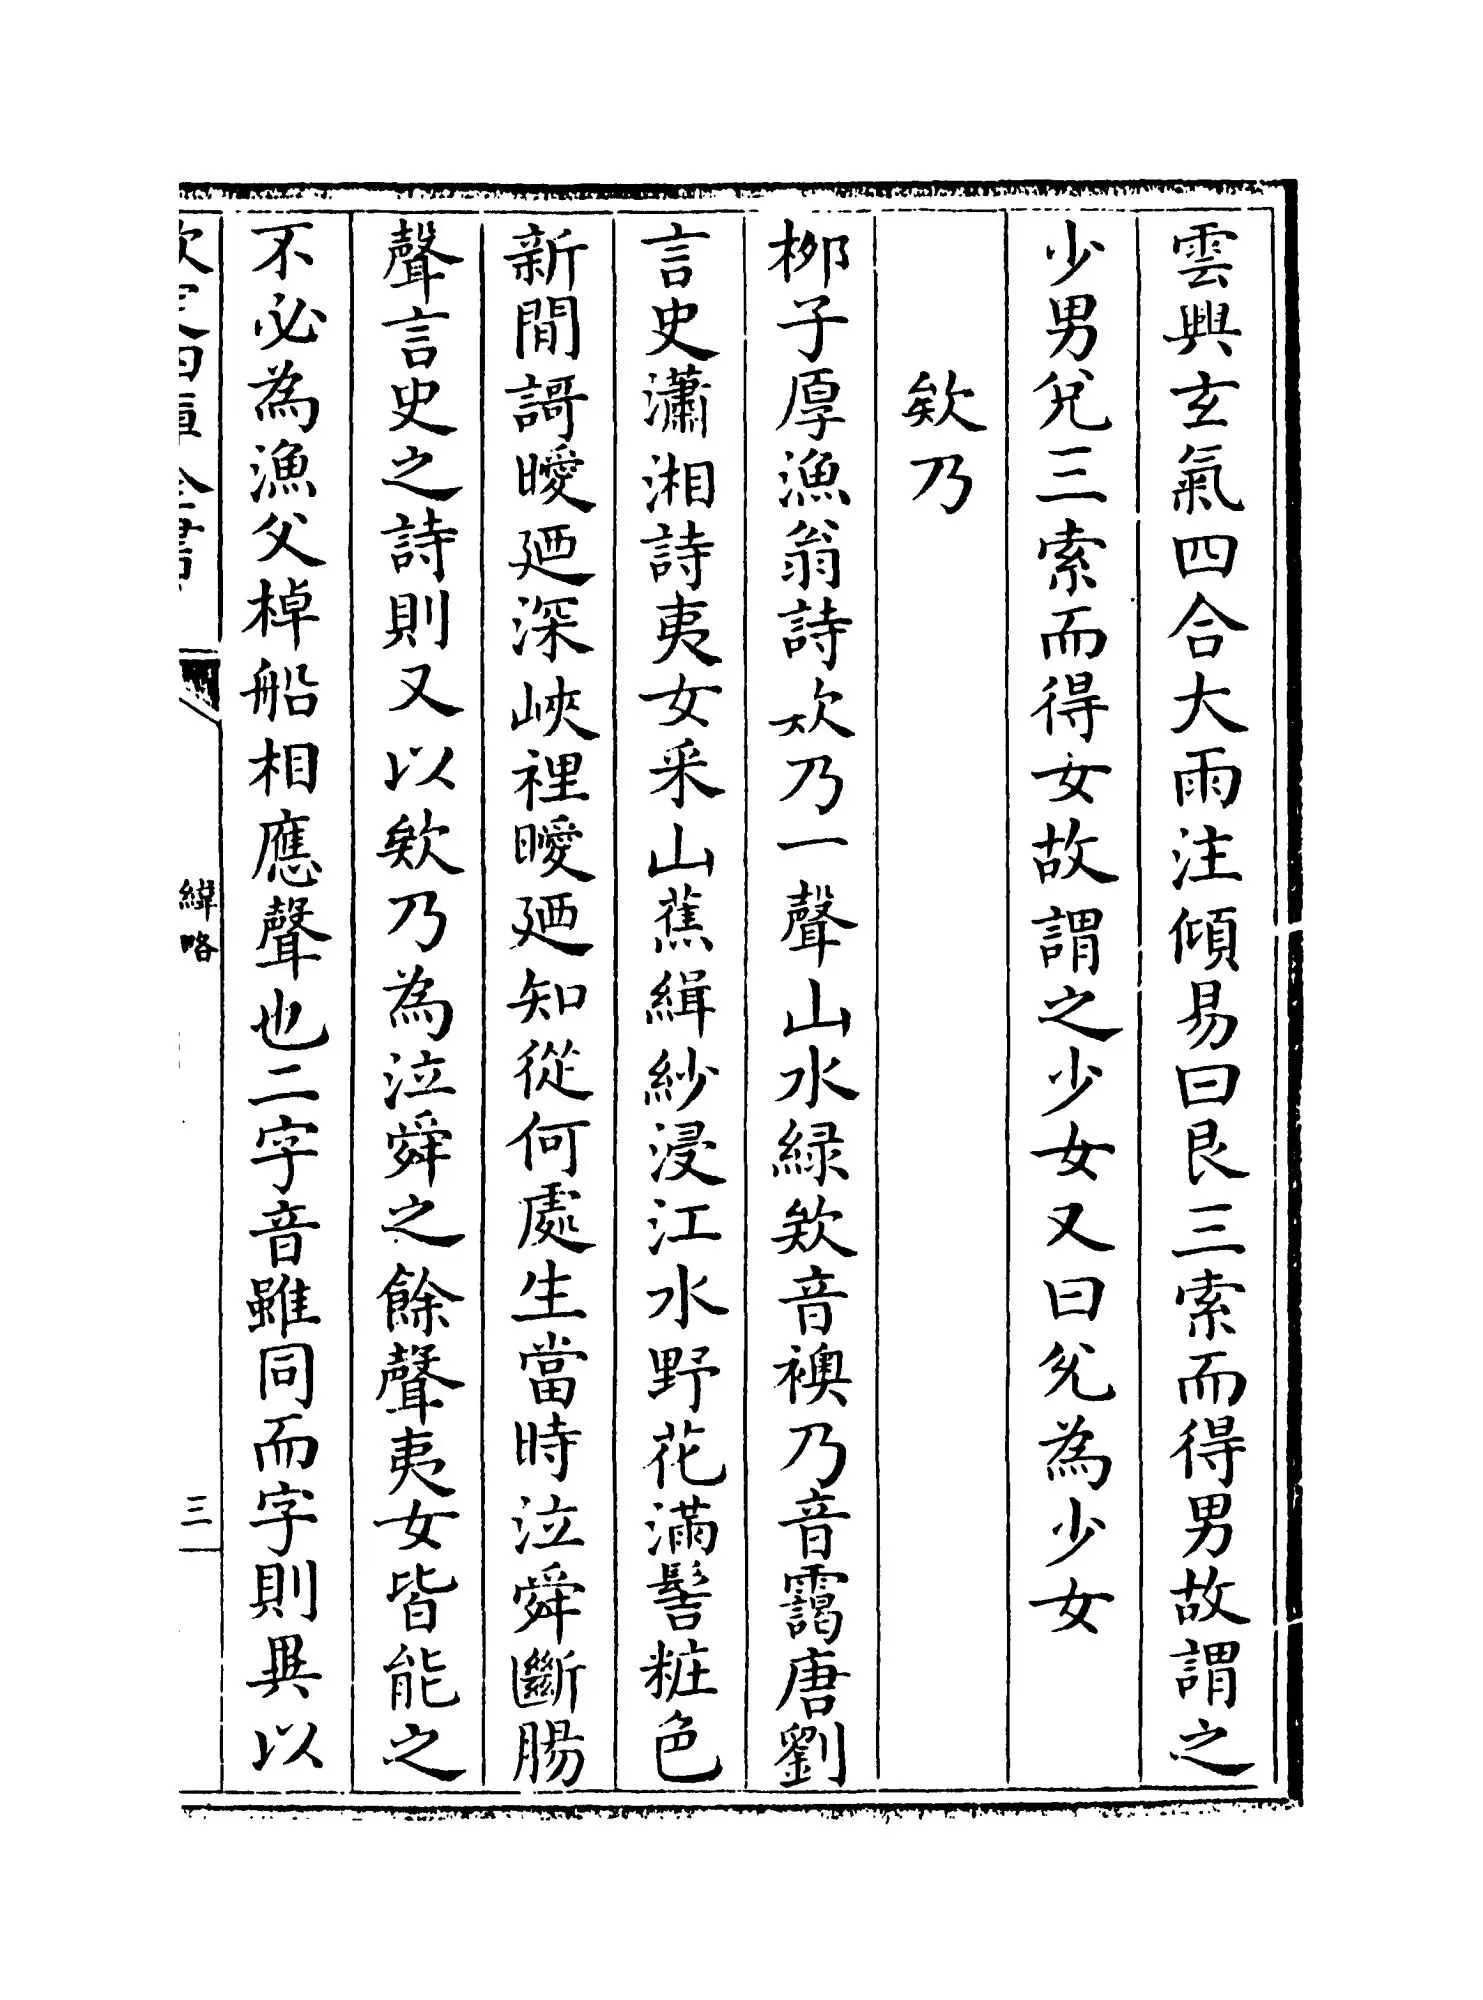 雲興玄氣四合大雨注傾易曰艮三索而得男故謂之
少男兌三索而得女故謂之少女又曰兌為少女
欸乃
桞子厚漁翁詩欸乃一聲山水緑欸音襖乃音靄唐劉
言史瀟湘詩夷女采山蕉緝紗浸江水野花滿髻粧色
新閒謌曖廼深峽裡曖廼知從何處生當時泣舜斷腸
聲言史之詩則又以欸乃為泣舜之餘聲夷女皆能之
不必為漁父棹船相應聲也二字音雖同而字則異以
欽定四庫全書
緯略
三